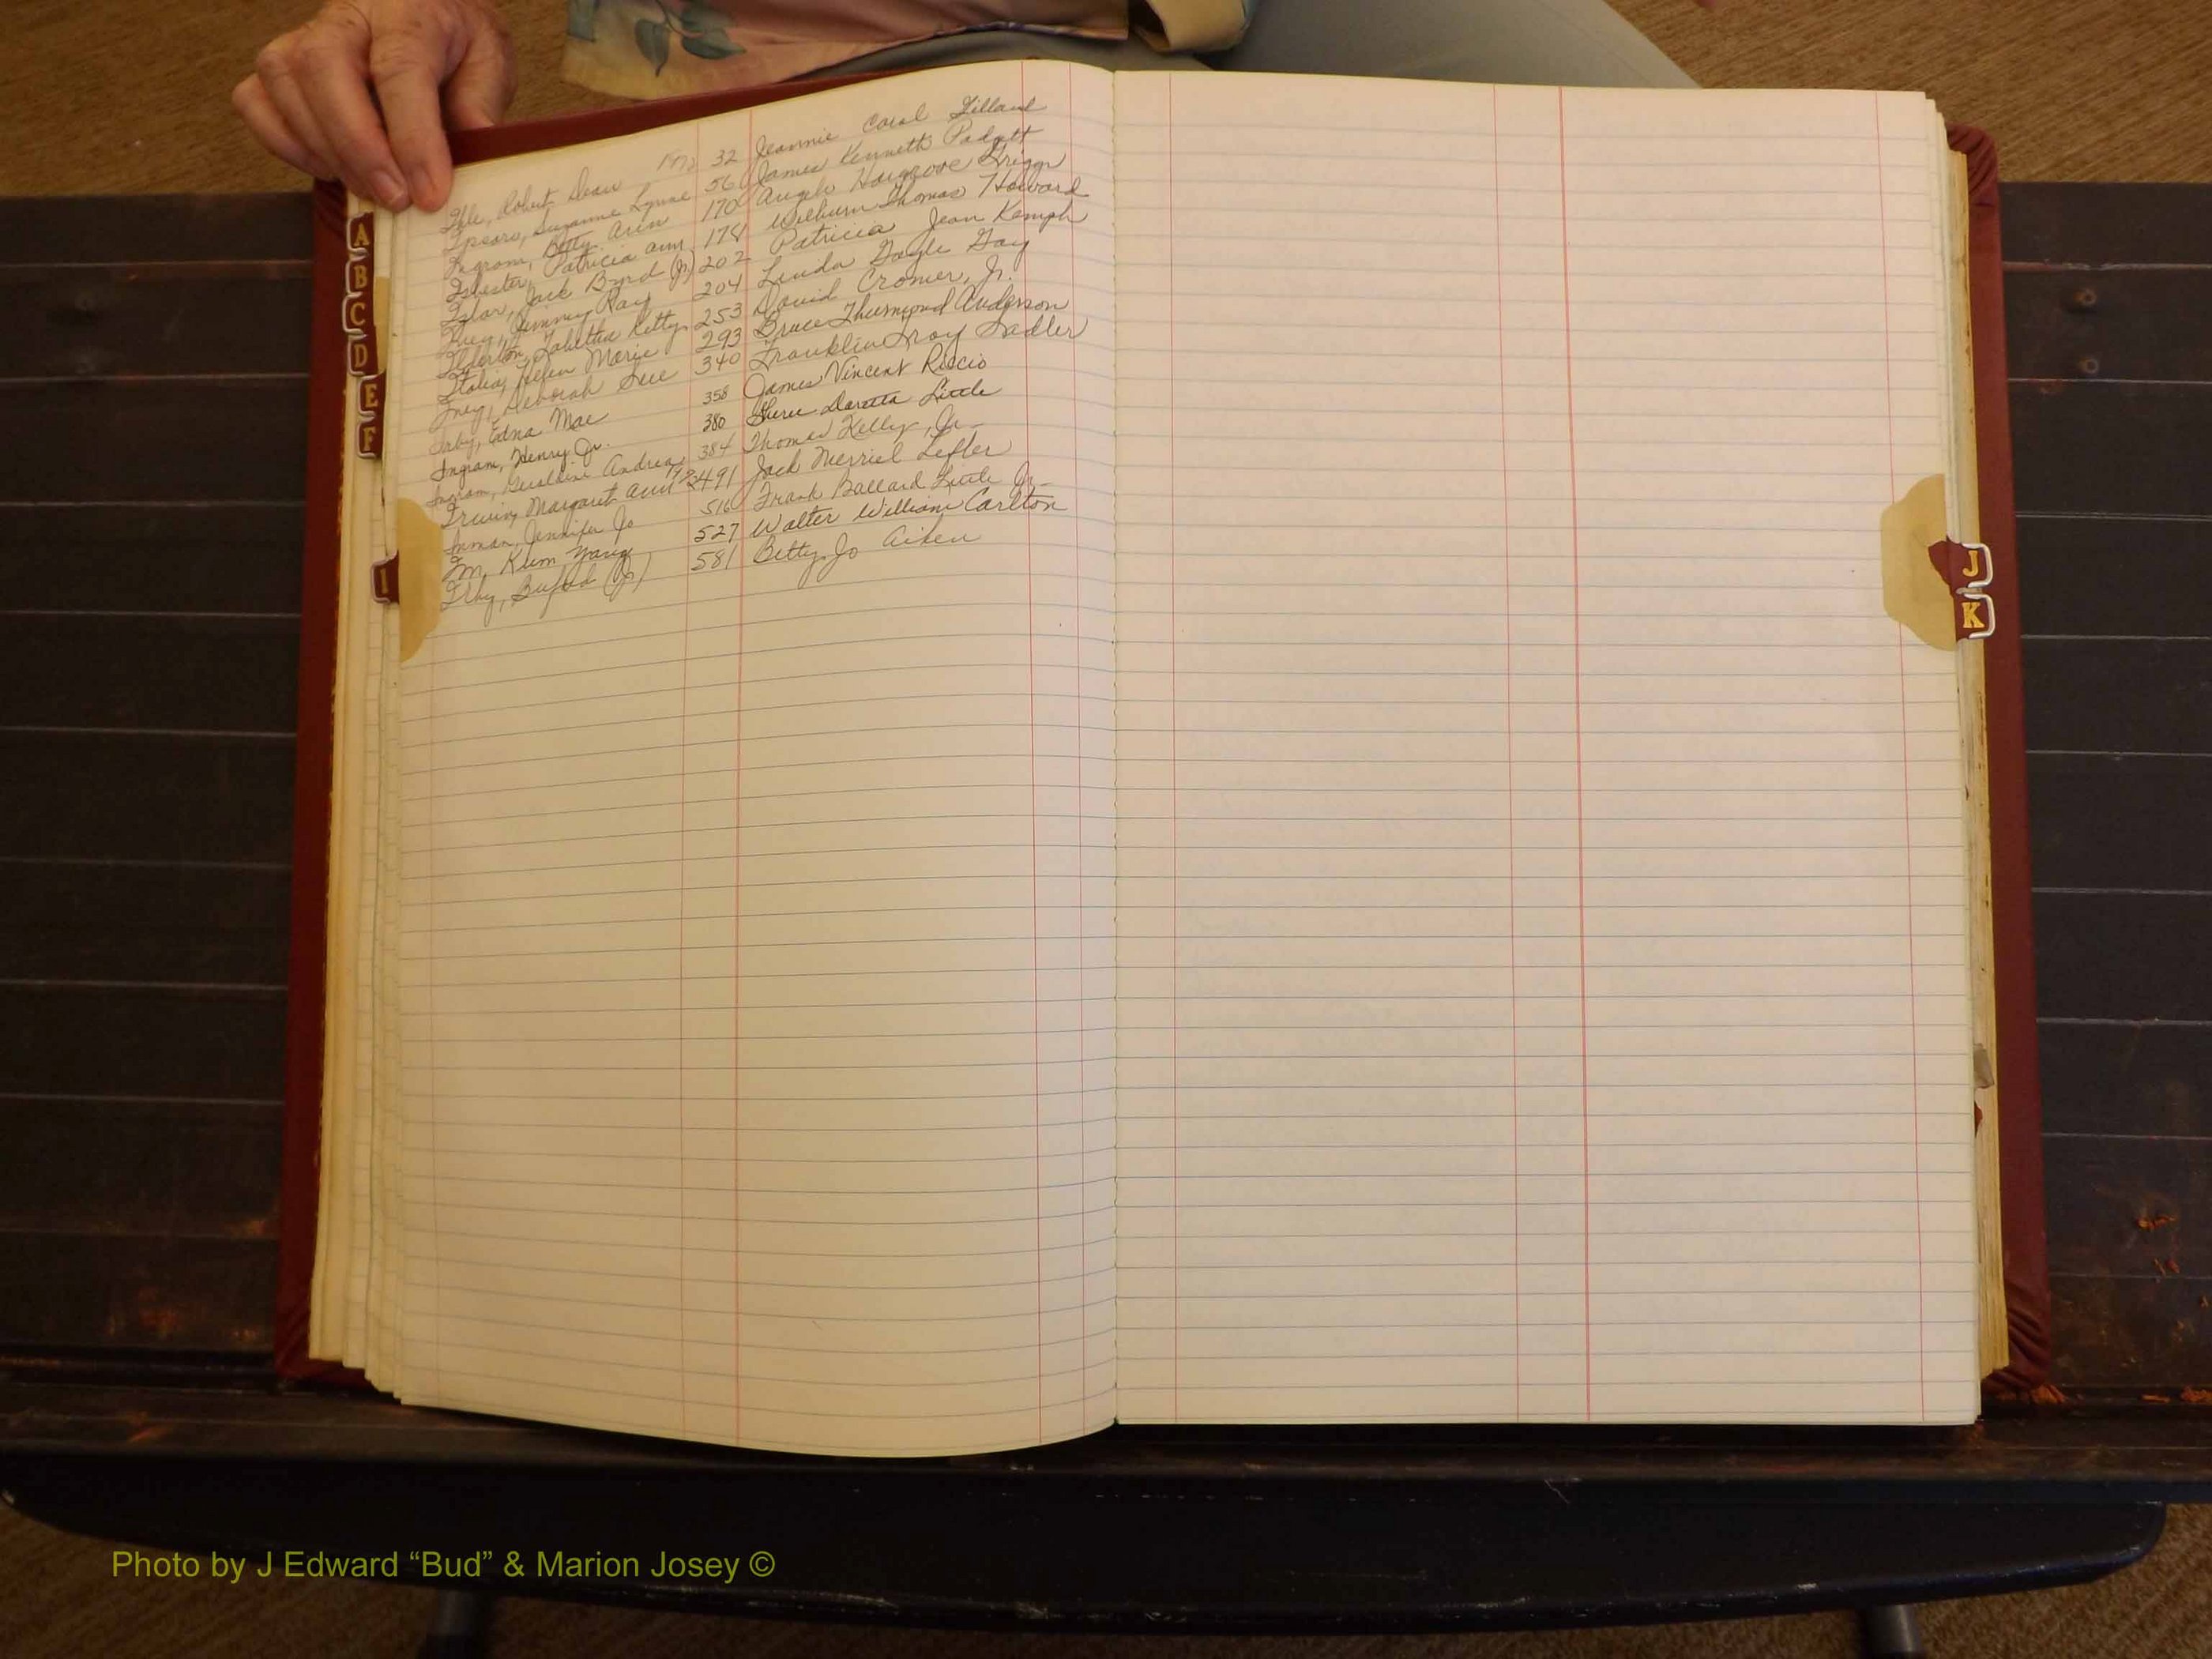 Ihle, Robert Dean 1972 32 Jeannie Coral Gilland
Ipsaro, Suzanne Lynne 56 James Kenneth Padgett
Ingram, Betty Ann 170 Hargrove Griggs
Isbester, Patricia Ann 178 Wilburn Thomas Howard
Jack Byrd (Jr) 202 Patricia Jean Kemph
Ivey, Jimmy Ray 204 Linda Gayle Gay
Ilderton, Betty 253 David Cromer, Jr.
Italia, Helen Marie 293 Bruce Thurmond Anderson
Ivey, Deborah Sue 340 Franklin Troy Sadler
Irby, Edna Mae 358 James Vincent Riccio
Ingram, Henry Jr. 380 Little
Ingram, Geraldine Andrea 384 Thomas Kelly, Jr.
Irwin, Margaret Ann 491 Jack Merriel Lefler
Inman, Jennifer Jo 516 Frank Ballard Little Jr.
Im, Kum Yang 527 Walter William Carlton
Irby, Buford (Jr) 581 Betty Jo Aiken
A
B
C
D
E
F
I
J
K
Photo by J Edward “Bud” & Marion Josey ©